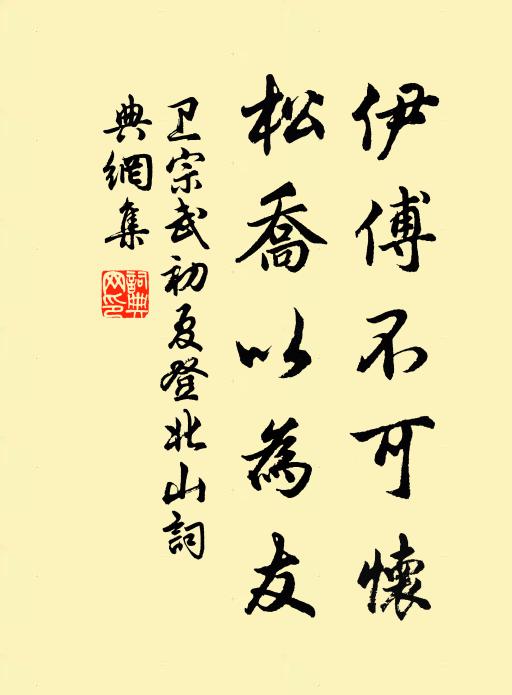 伊傅不可懷
松喬以為友
卫宗武初夏登北山詞
典網集
詞典
网印